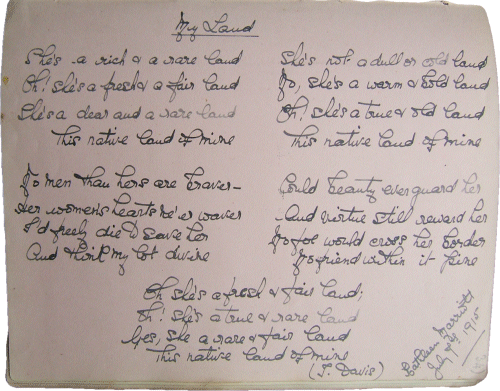 My Land
She's a rich & a rare land
Oh! she's a fresh & a fair land
She's a dear and a rare land
This native land of mine
No men than hers are braver -
Her women's hearts ne'er waver
I'd freely die to save her
And think my lot divine
She's not a dull or cold land
No, she's a warm & bold land
Oh! she's a true & old land
This native land of mine
Could beauty ever guard her
And virtue still reward her
No foe would cross her border
No friend within it pine
Oh she's a fresh & fair land;
Oh! she's a true & rare land
Yes, she a rare & fair land
This native land of mine
(T. Davis)
Kathleen Marriott
July 9th 1915